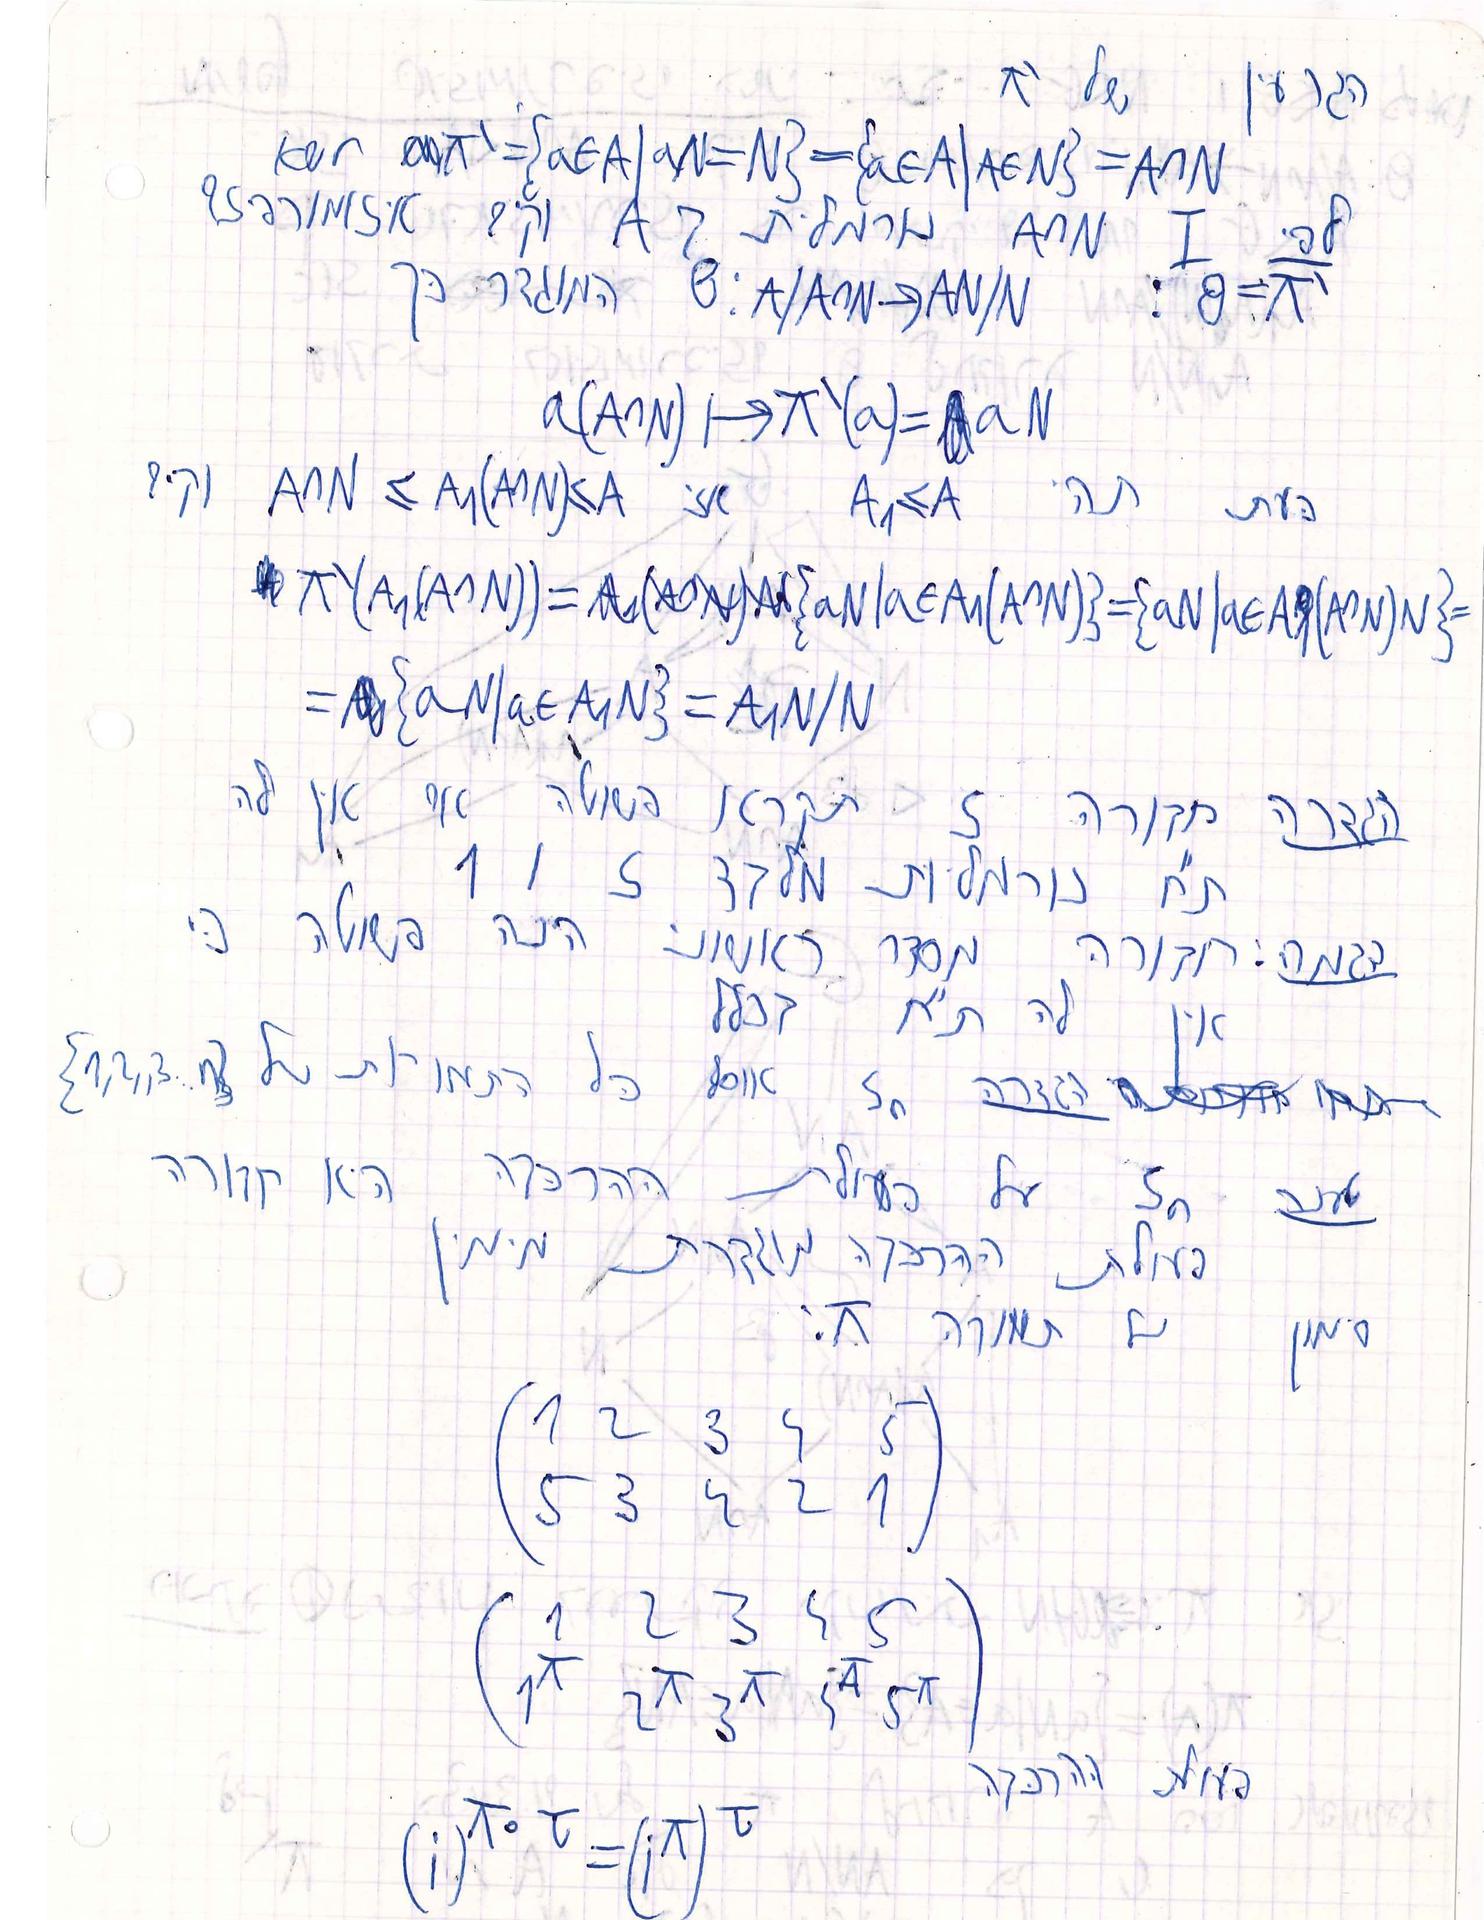 הגרעין של π'
ker π' = {a∈A | aN=N} = {a∈A | A∈N} = A∩N
לפי I A∩N נורמלית ב A וקיים איזומורפיזם
θ=π' : θ: A/A∩N → AN/N המוגדר כך
a(A∩N) ↦ π'(a) = aN
כעת תהי A₁≤A אזי A∩N ≤ A₁(A∩N) ≤ A וקיים
π'(A₁(A∩N)) = {aN | a∈A₁(A∩N)} = {aN | a∈A₁(A∩N)N} =
= {aN | a∈A₁N} = A₁N/N
הגדרה חבורה S תקרא פשוטה אם אין לה
ת"ח נורמליות מלבד S ו 1
דגמה: חבורה מסדר ראשוני הינה פשוטה כי
אין לה ת"ח בכלל
הגדרה Sₙ אוסף כל התמורות של {1,2,3...n}
טענה Sₙ על פעולת ההרכבה היא חבורה
פעולת ההרכבה מוגדרת מימין
סימון של תמורה π:
( 1 2 3 4 5 )
( 5 3 4 2 1 )
( 1 2 3 4 5 )
( 1^π 2^π 3^π 4^π 5^π )
פעולת ההרכבה
(i)^{π∘τ} = (i^π)^τ